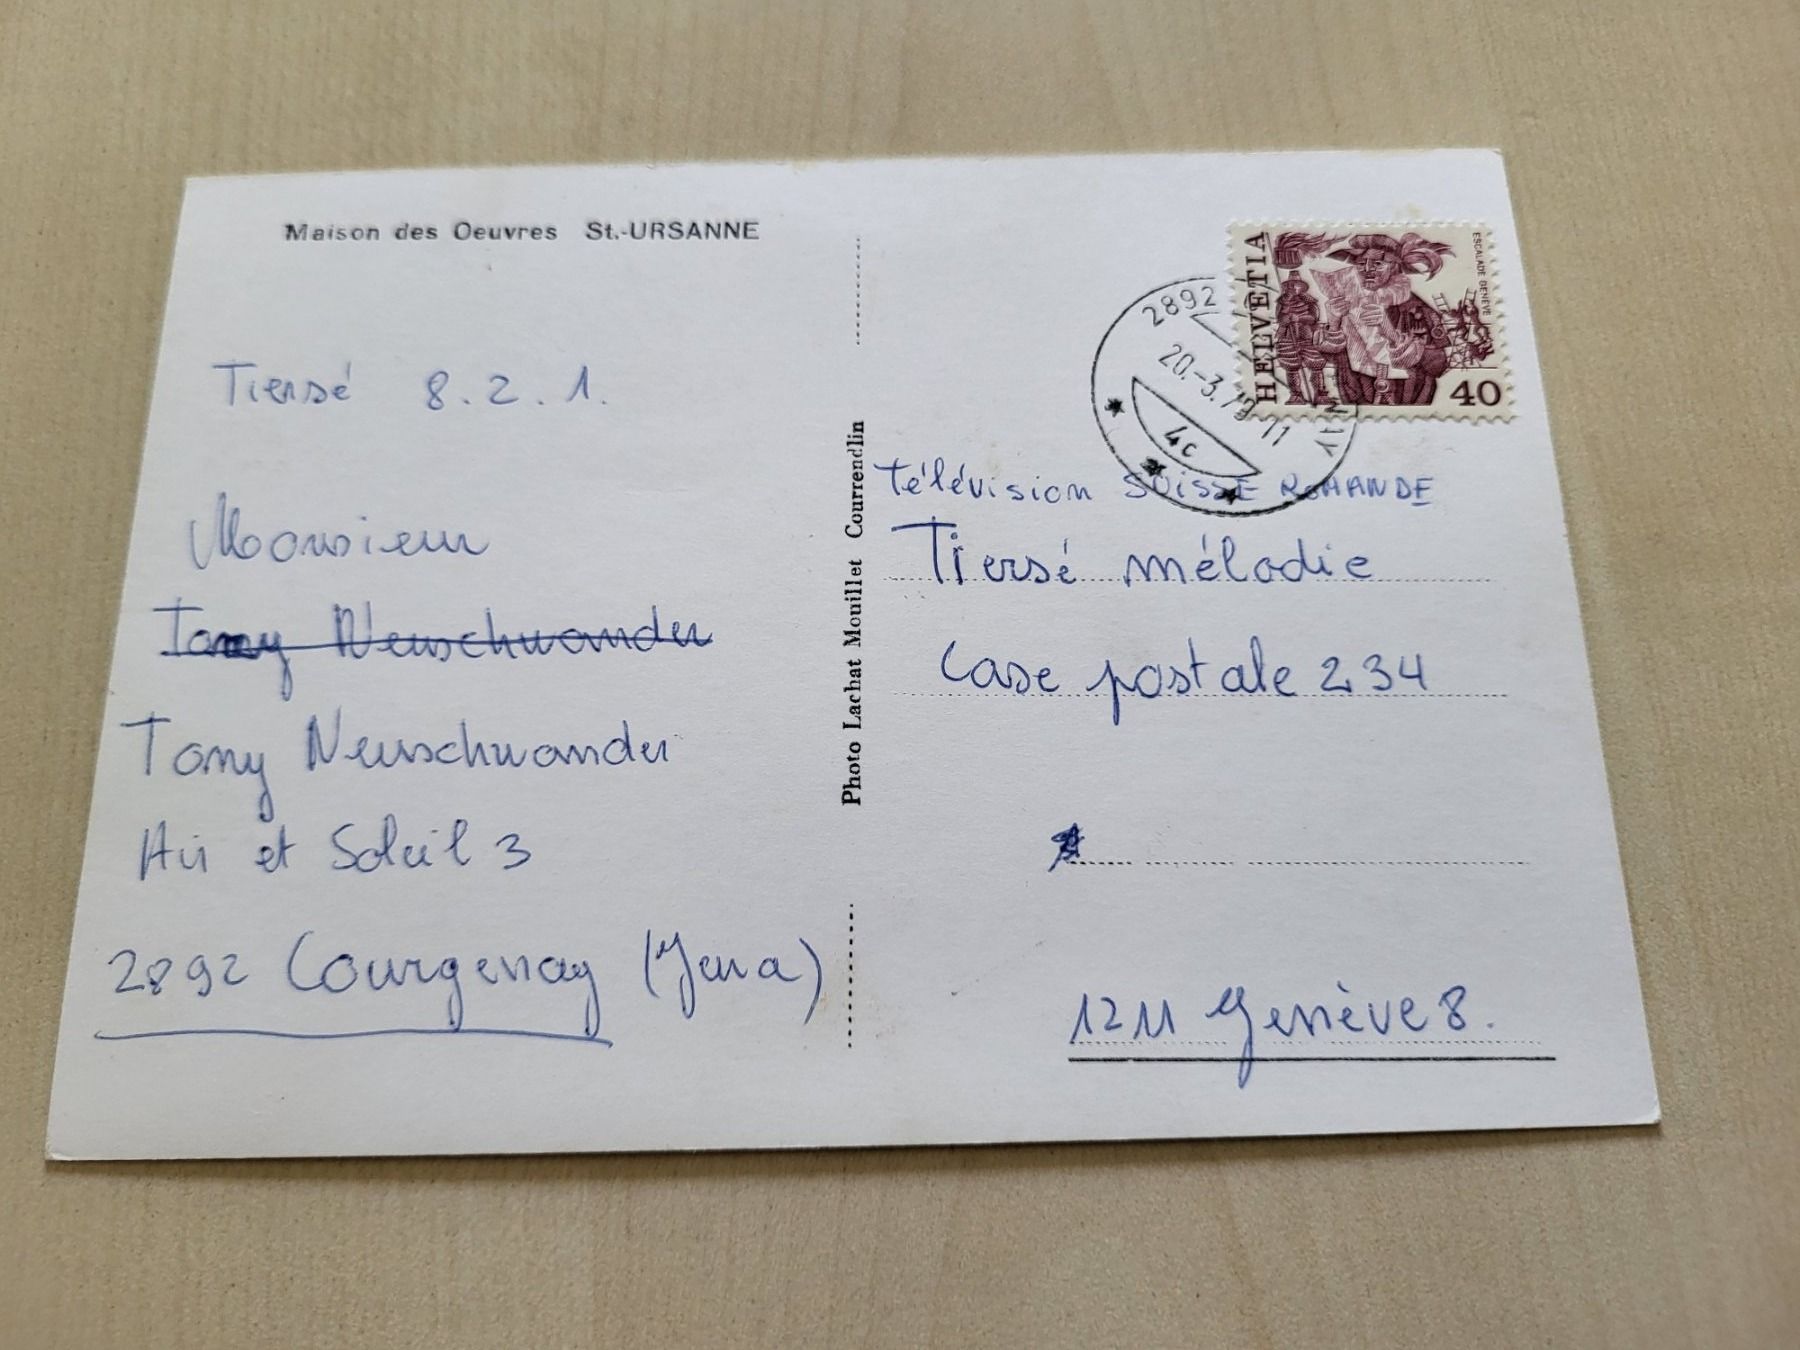 Maison des Oeuvres St.-URSANNE
Tiersé 8.2.1.
Monsieur
Tony Neuschwander
Tony Neuschwander
Air et Soleil 3
2892 Courgenay (Jura)
Photo Lachat Mouillet Courrendlin
HELVETIA
ESCALADE GENÈVE
40
2892
20.-3.79 11
4c
Télévision SUISSE ROMANDE
Tiersé mélodie
Case postale 234
1211 Genève 8.